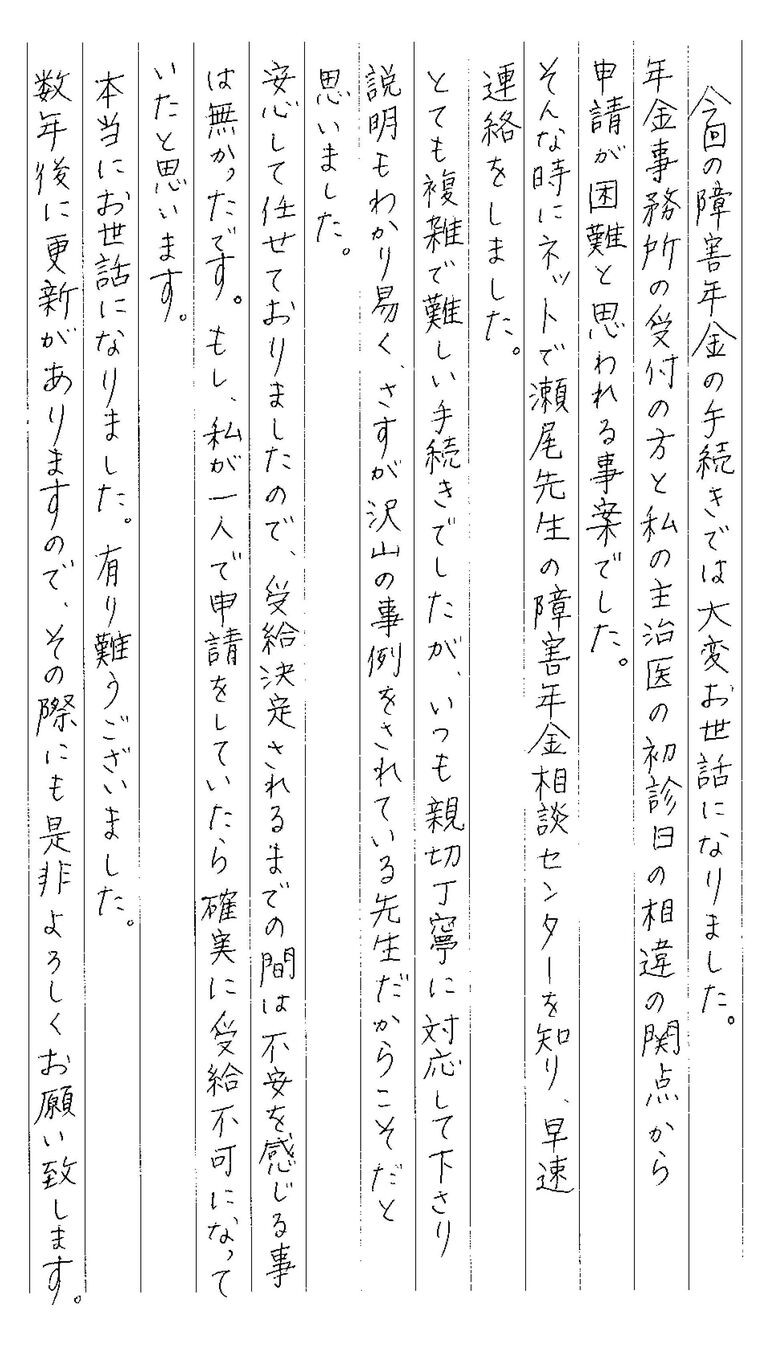 今回の障害年金の手続きでは大変お世話になりました。
年金事務所の受付の方と私の主治医の初診日の相違の関点から
申請が困難と思われる事案でした。
そんな時にネットで瀬尾先生の障害年金相談センターを知り、早速
連絡をしました。
とても複雑で難しい手続きでしたが、いつも親切丁寧に対応して下さり
説明もわかり易く、さすが沢山の事例をされている先生だからこそだと
思いました。
安心して任せておりましたので、受給決定されるまでの間は不安を感じる事
は無かったです。もし、私が一人で申請をしていたら確実に受給不可になって
いたと思います。
本当にお世話になりました。有り難うございました。
数年後に更新がありますので、その際にも是非よろしくお願い致します。